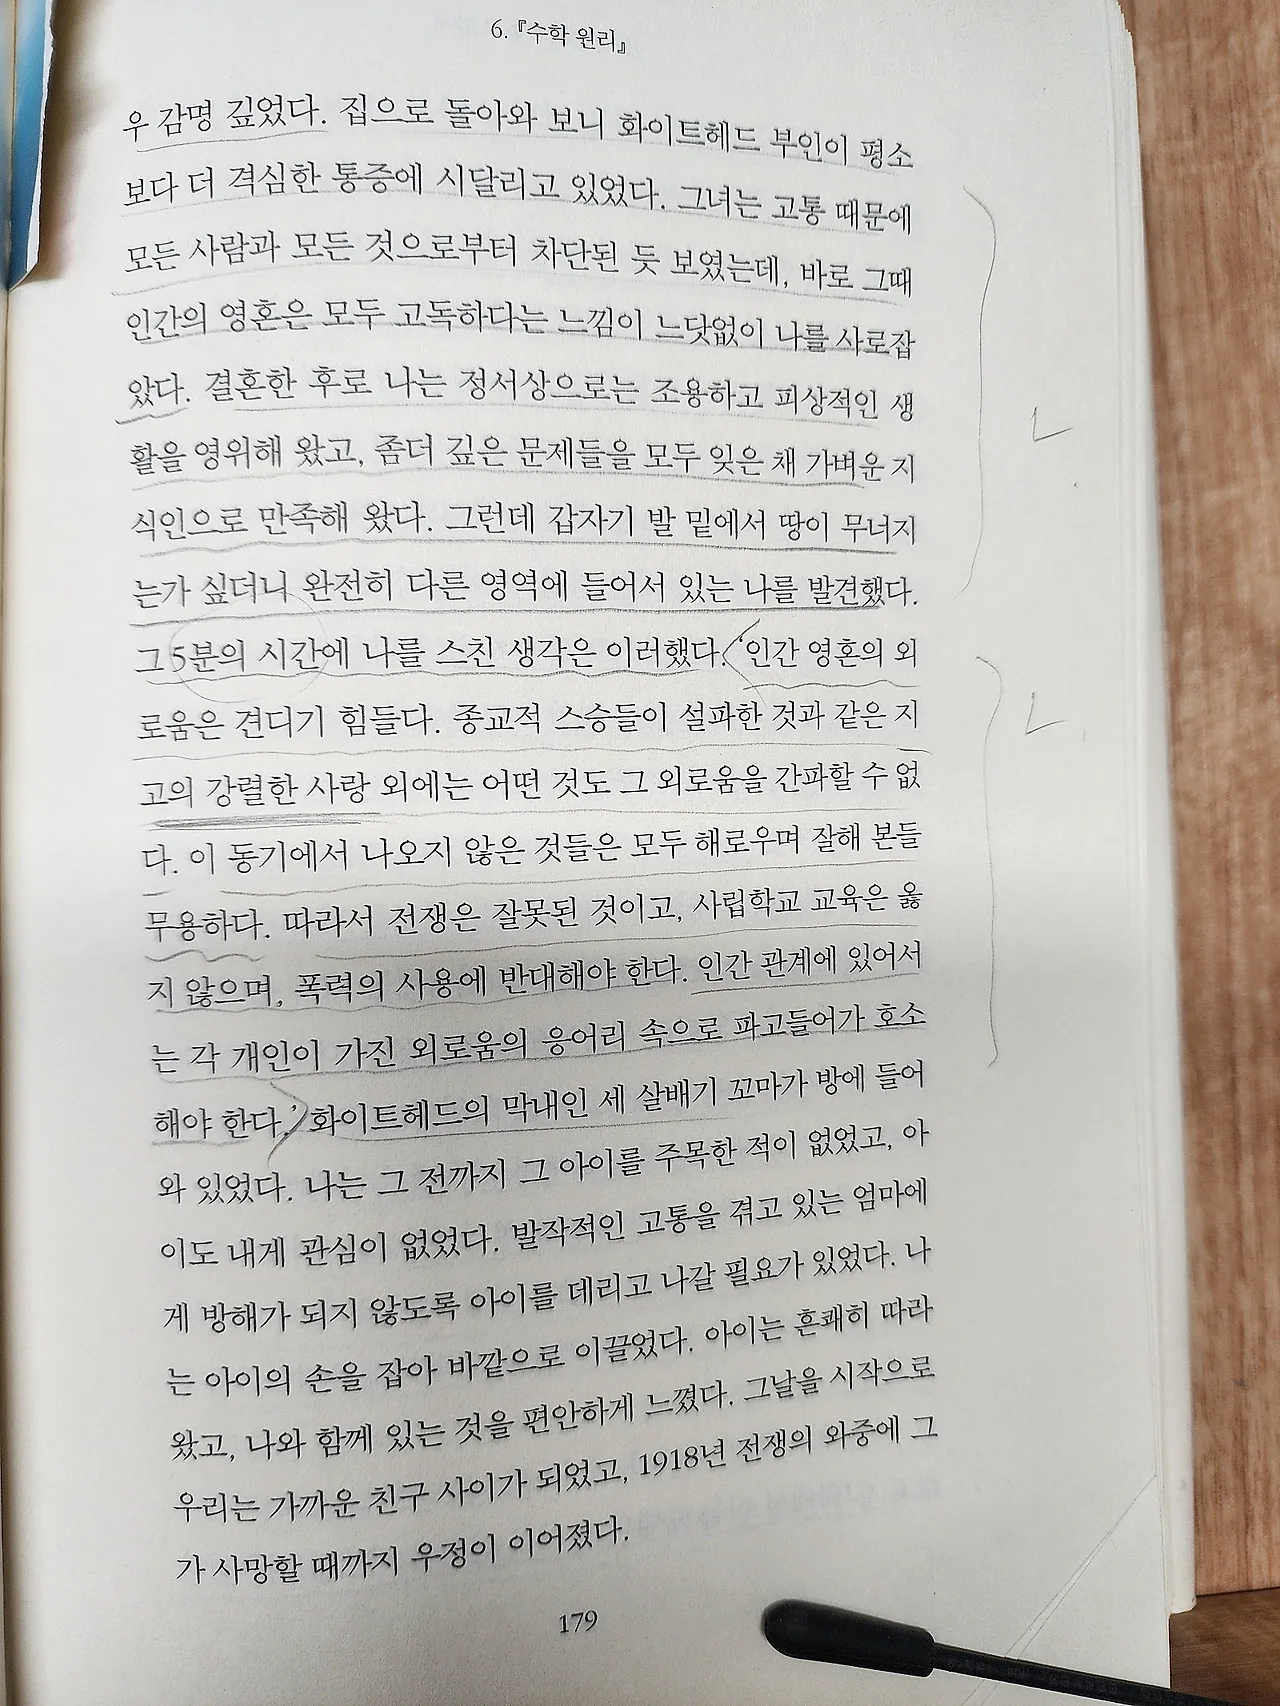 6. 『수학 원리』
우 감명 깊었다. 집으로 돌아와 보니 화이트헤드 부인이 평소
보다 더 격심한 통증에 시달리고 있었다. 그녀는 고통 때문에
모든 사람과 모든 것으로부터 차단된 듯 보였는데, 바로 그때
인간의 영혼은 모두 고독하다는 느낌이 느닷없이 나를 사로잡
았다. 결혼한 후로 나는 정서상으로는 조용하고 피상적인 생
활을 영위해 왔고, 좀더 깊은 문제들을 모두 잊은 채 가벼운 지
식인으로 만족해 왔다. 그런데 갑자기 발 밑에서 땅이 무너지
는가 싶더니 완전히 다른 영역에 들어서 있는 나를 발견했다.
그 5분의 시간에 나를 스친 생각은 이러했다. '인간 영혼의 외
로움은 견디기 힘들다. 종교적 스승들이 설파한 것과 같은 지
고의 강렬한 사랑 외에는 어떤 것도 그 외로움을 간파할 수 없
다. 이 동기에서 나오지 않은 것들은 모두 해로우며 잘해 본들
무용하다. 따라서 전쟁은 잘못된 것이고, 사립학교 교육은 옳
지 않으며, 폭력의 사용에 반대해야 한다. 인간 관계에 있어서
는 각 개인이 가진 외로움의 응어리 속으로 파고들어가 호소
해야 한다.' 화이트헤드의 막내인 세 살배기 꼬마가 방에 들어
와 있었다. 나는 그 전까지 그 아이를 주목한 적이 없었고, 아
이도 내게 관심이 없었다. 발작적인 고통을 겪고 있는 엄마에
게 방해가 되지 않도록 아이를 데리고 나갈 필요가 있었다. 나
는 아이의 손을 잡아 바깥으로 이끌었다. 아이는 흔쾌히 따라
왔고, 나와 함께 있는 것을 편안하게 느꼈다. 그날을 시작으로
우리는 가까운 친구 사이가 되었고, 1918년 전쟁의 와중에 그
가 사망할 때까지 우정이 이어졌다.
179